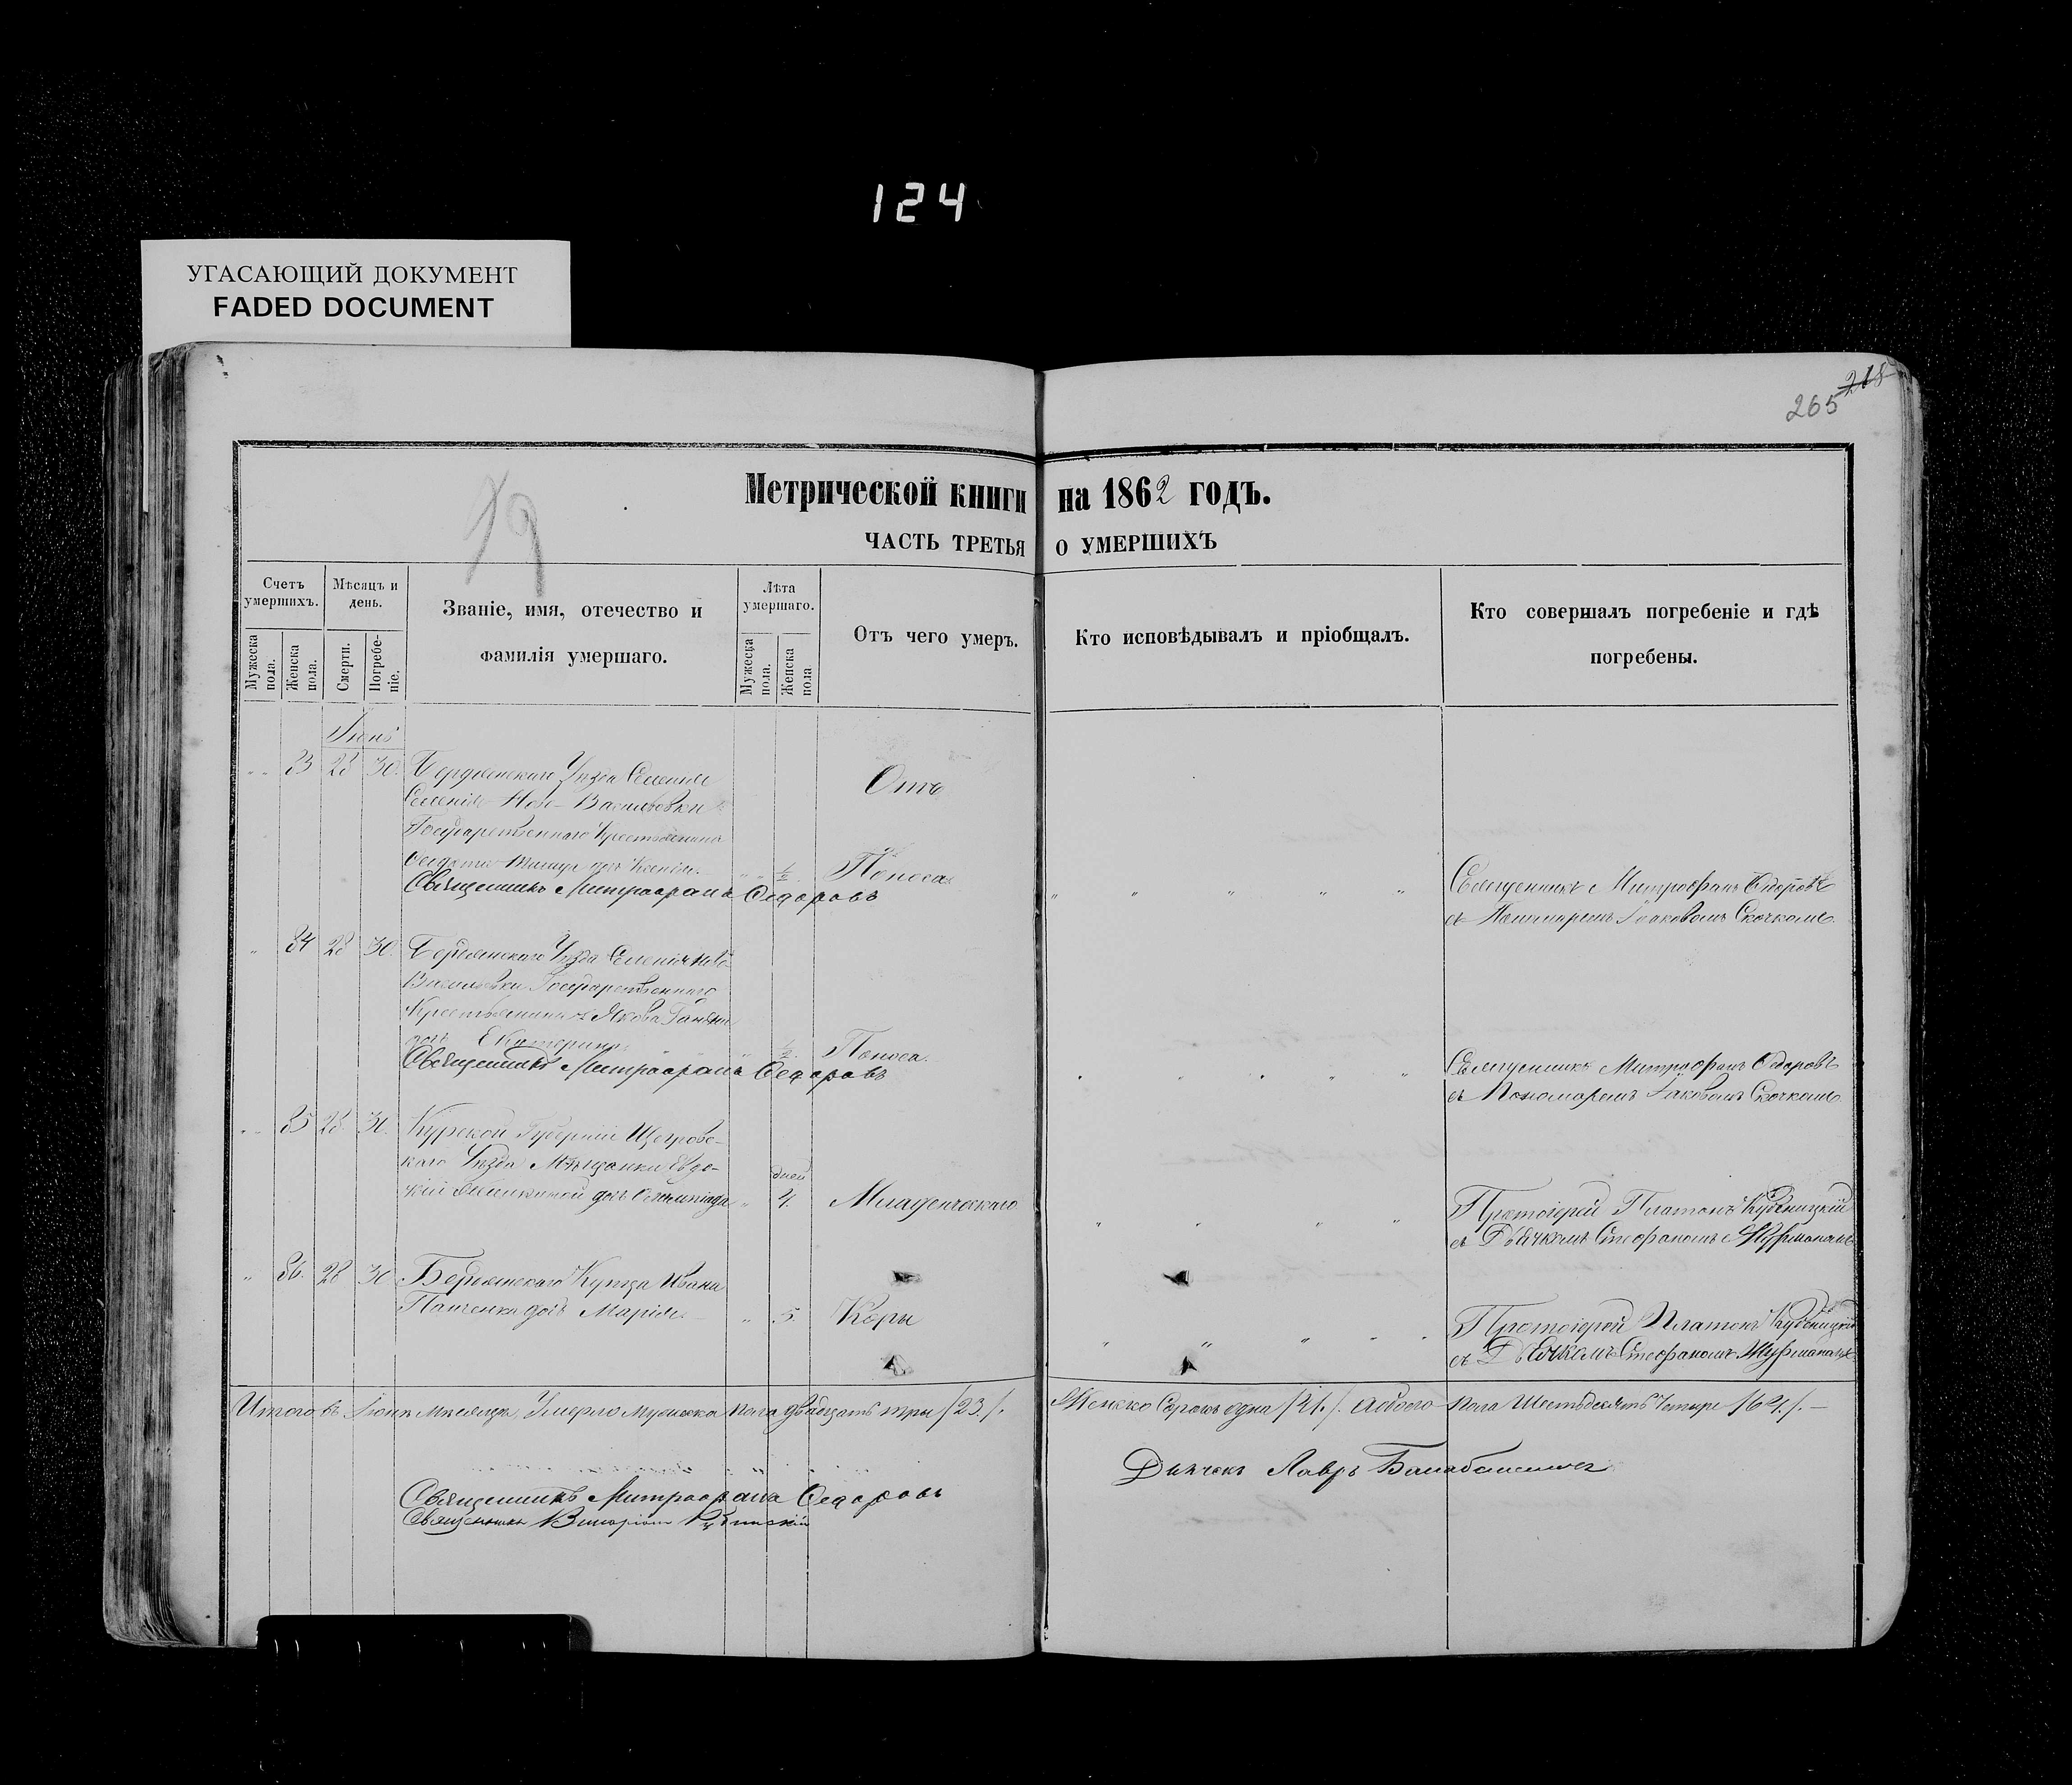 124
УГАСАЮЩИЙ ДОКУМЕНТ
FADED DOCUMENT
218
265
19
Метрической книги на 1862 годъ.
ЧАСТЬ ТРЕТЬЯ О УМЕРШИХЪ
Счетъ умершихъ.
Мужеска пола.
Женска пола.
Мѣсяцъ и день.
Смерти.
Погребе-ніе.
Званіе, имя, отечество и
фамилія умершаго.
Лѣта умершаго.
Мужеска пола.
Женска пола
Отъ чего умеръ.
Кто исповѣдывалъ и пріобщалъ.
Кто совершалъ погребеніе и гдѣ
погребены.
Іюнь
83 28 30. Бердянскаго Уѣзда Селенія
Селенія Ново-Васильевки
Отъ
Государственнаго Крестьянина
дочь Ксенія. 1/2 Поноса
Священникъ Митрофанъ Федоровъ
Священникъ Митрофанъ Федоровъ
съ Пономаремъ Іаковомъ Скочкомъ.
84 28 30. Бердянскаго Уѣзда Селенія Ново
Васильевки Государственнаго
Крестьянина Якова
дочь Екатерина. 1/2. Поноса.
Священникъ Митрофанъ Федоровъ
Священникъ Митрофанъ Федоровъ
съ Пономаремъ Іаковомъ Скочкомъ.
85 28. 30. Курской Губерніи Щигровс-
каго Уѣзда Мѣщанки Евдо-
дочь Олимпіада
дней
4. Младенческаго
Протоіерей Платонъ
съ Дьячкомъ Стефаномъ
86. 28 30 Бердянскаго Купца Ивана
дочь Марія. 5. Коры
Протоіерей Платонъ
съ Дьячкомъ Стефаномъ
Итого въ Іюнѣ Мѣсяцѣ Умерло Мужеска пола двадцать три /23/. Женско Сорокъ одна /41./. Обоего пола Шестьдесятъ Четыре /64/. —
Дьячекъ Лавръ
Священникъ Митрофанъ Федоровъ
Священникъ